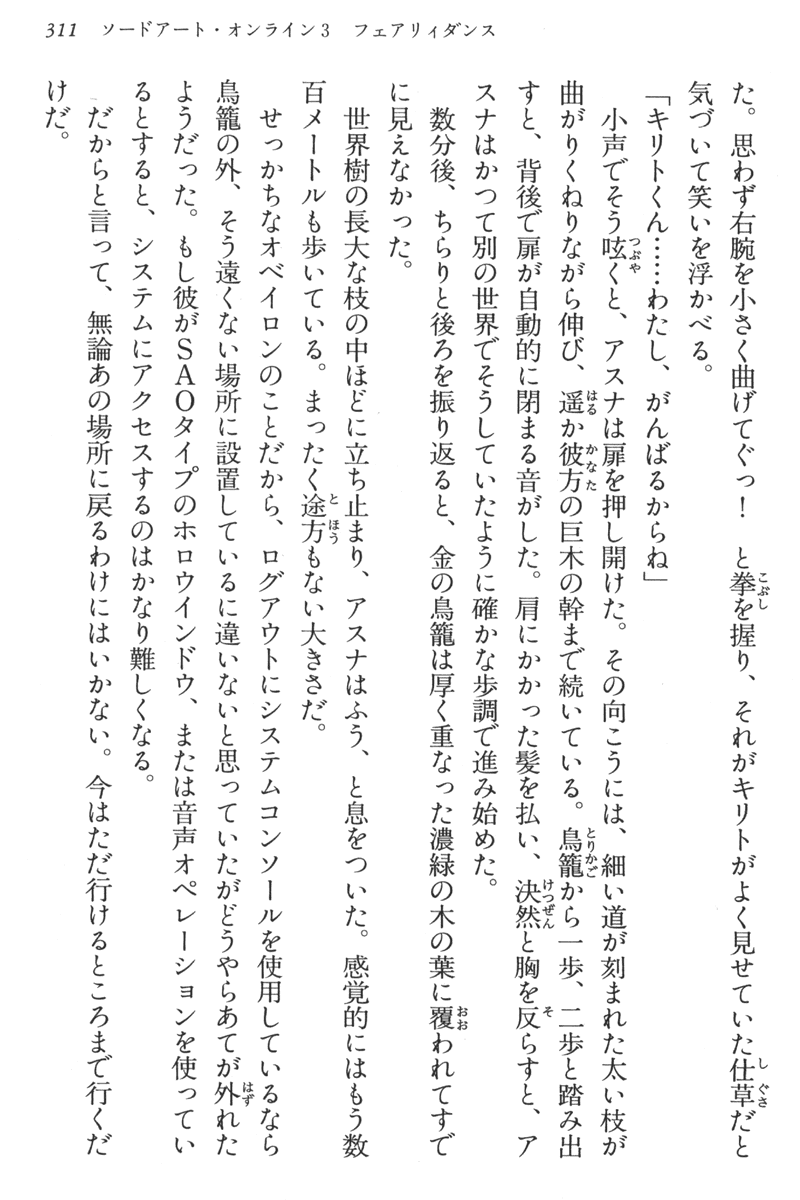 311 ソードアート・オンライン3 フェアリィダンス
た。思わず右腕を小さく曲げてぐっ！ と拳を握り、それがキリトがよく見せていた仕草だと
気づいて笑いを浮かべる。
「キリトくん……わたし、がんばるからね」
小声でそう呟くと、アスナは扉を押し開けた。その向こうには、細い道が刻まれた太い枝が
曲がりくねりながら伸び、遥か彼方の巨木の幹まで続いている。鳥籠から一歩、二歩と踏み出
すと、背後で扉が自動的に閉まる音がした。肩にかかった髪を払い、決然と胸を反らすと、ア
スナはかつて別の世界でそうしていたように確かな歩調で進み始めた。
数分後、ちらりと後ろを振り返ると、金の鳥籠は厚く重なった濃緑の木の葉に覆われてすで
に見えなかった。
世界樹の長大な枝の中ほどに立ち止まり、アスナはふう、と息をついた。感覚的にはもう数
百メートルも歩いている。まったく途方もない大きさだ。
せっかちなオベイロンのことだから、ログアウトにシステムコンソールを使用しているなら
鳥籠の外、そう遠くない場所に設置しているに違いないと思っていたがどうやらあてが外れた
ようだった。もし彼がSAOタイプのホロウインドウ、または音声オペレーションを使ってい
るとすると、システムにアクセスするのはかなり難しくなる。
だからと言って、無論あの場所に戻るわけにはいかない。今はただ行けるところまで行くだ
けだ。